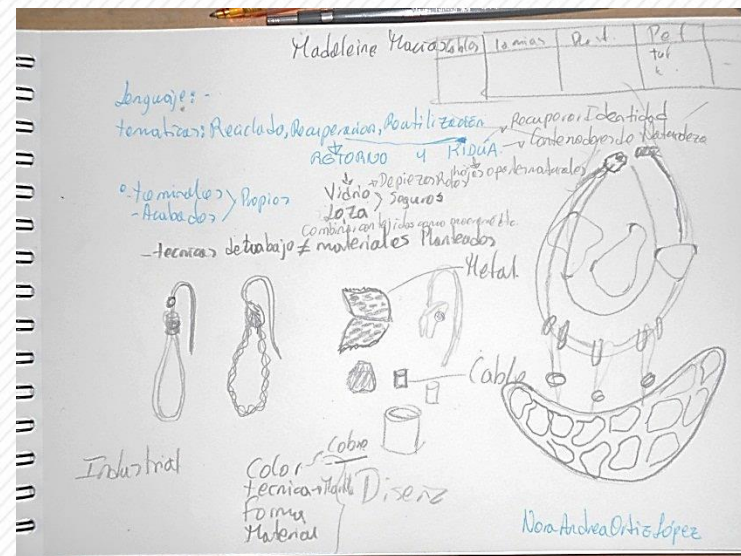 Madeleine Macias
Tablas Lonias Dist. Pef
tuf
Lenguaje:-
tematicas: Reciclado, Recuperacion, Reutilización
Recuperar Identidad
Contenedores de Naturaleza
RETORNO y KIDUA
hojas o partes naturales
-terminales
-Acabados
Propios
Vidrio
Loza
De piezas Rotas
Seguros
Combinar con tejidos como
-tecnicas de trabajo ≠ materiales Planteados
Metal
Cable
Industrial
Color
Cobre
tecnica
Forma
Material
Diseñ
Nora Andrea Ortiz López